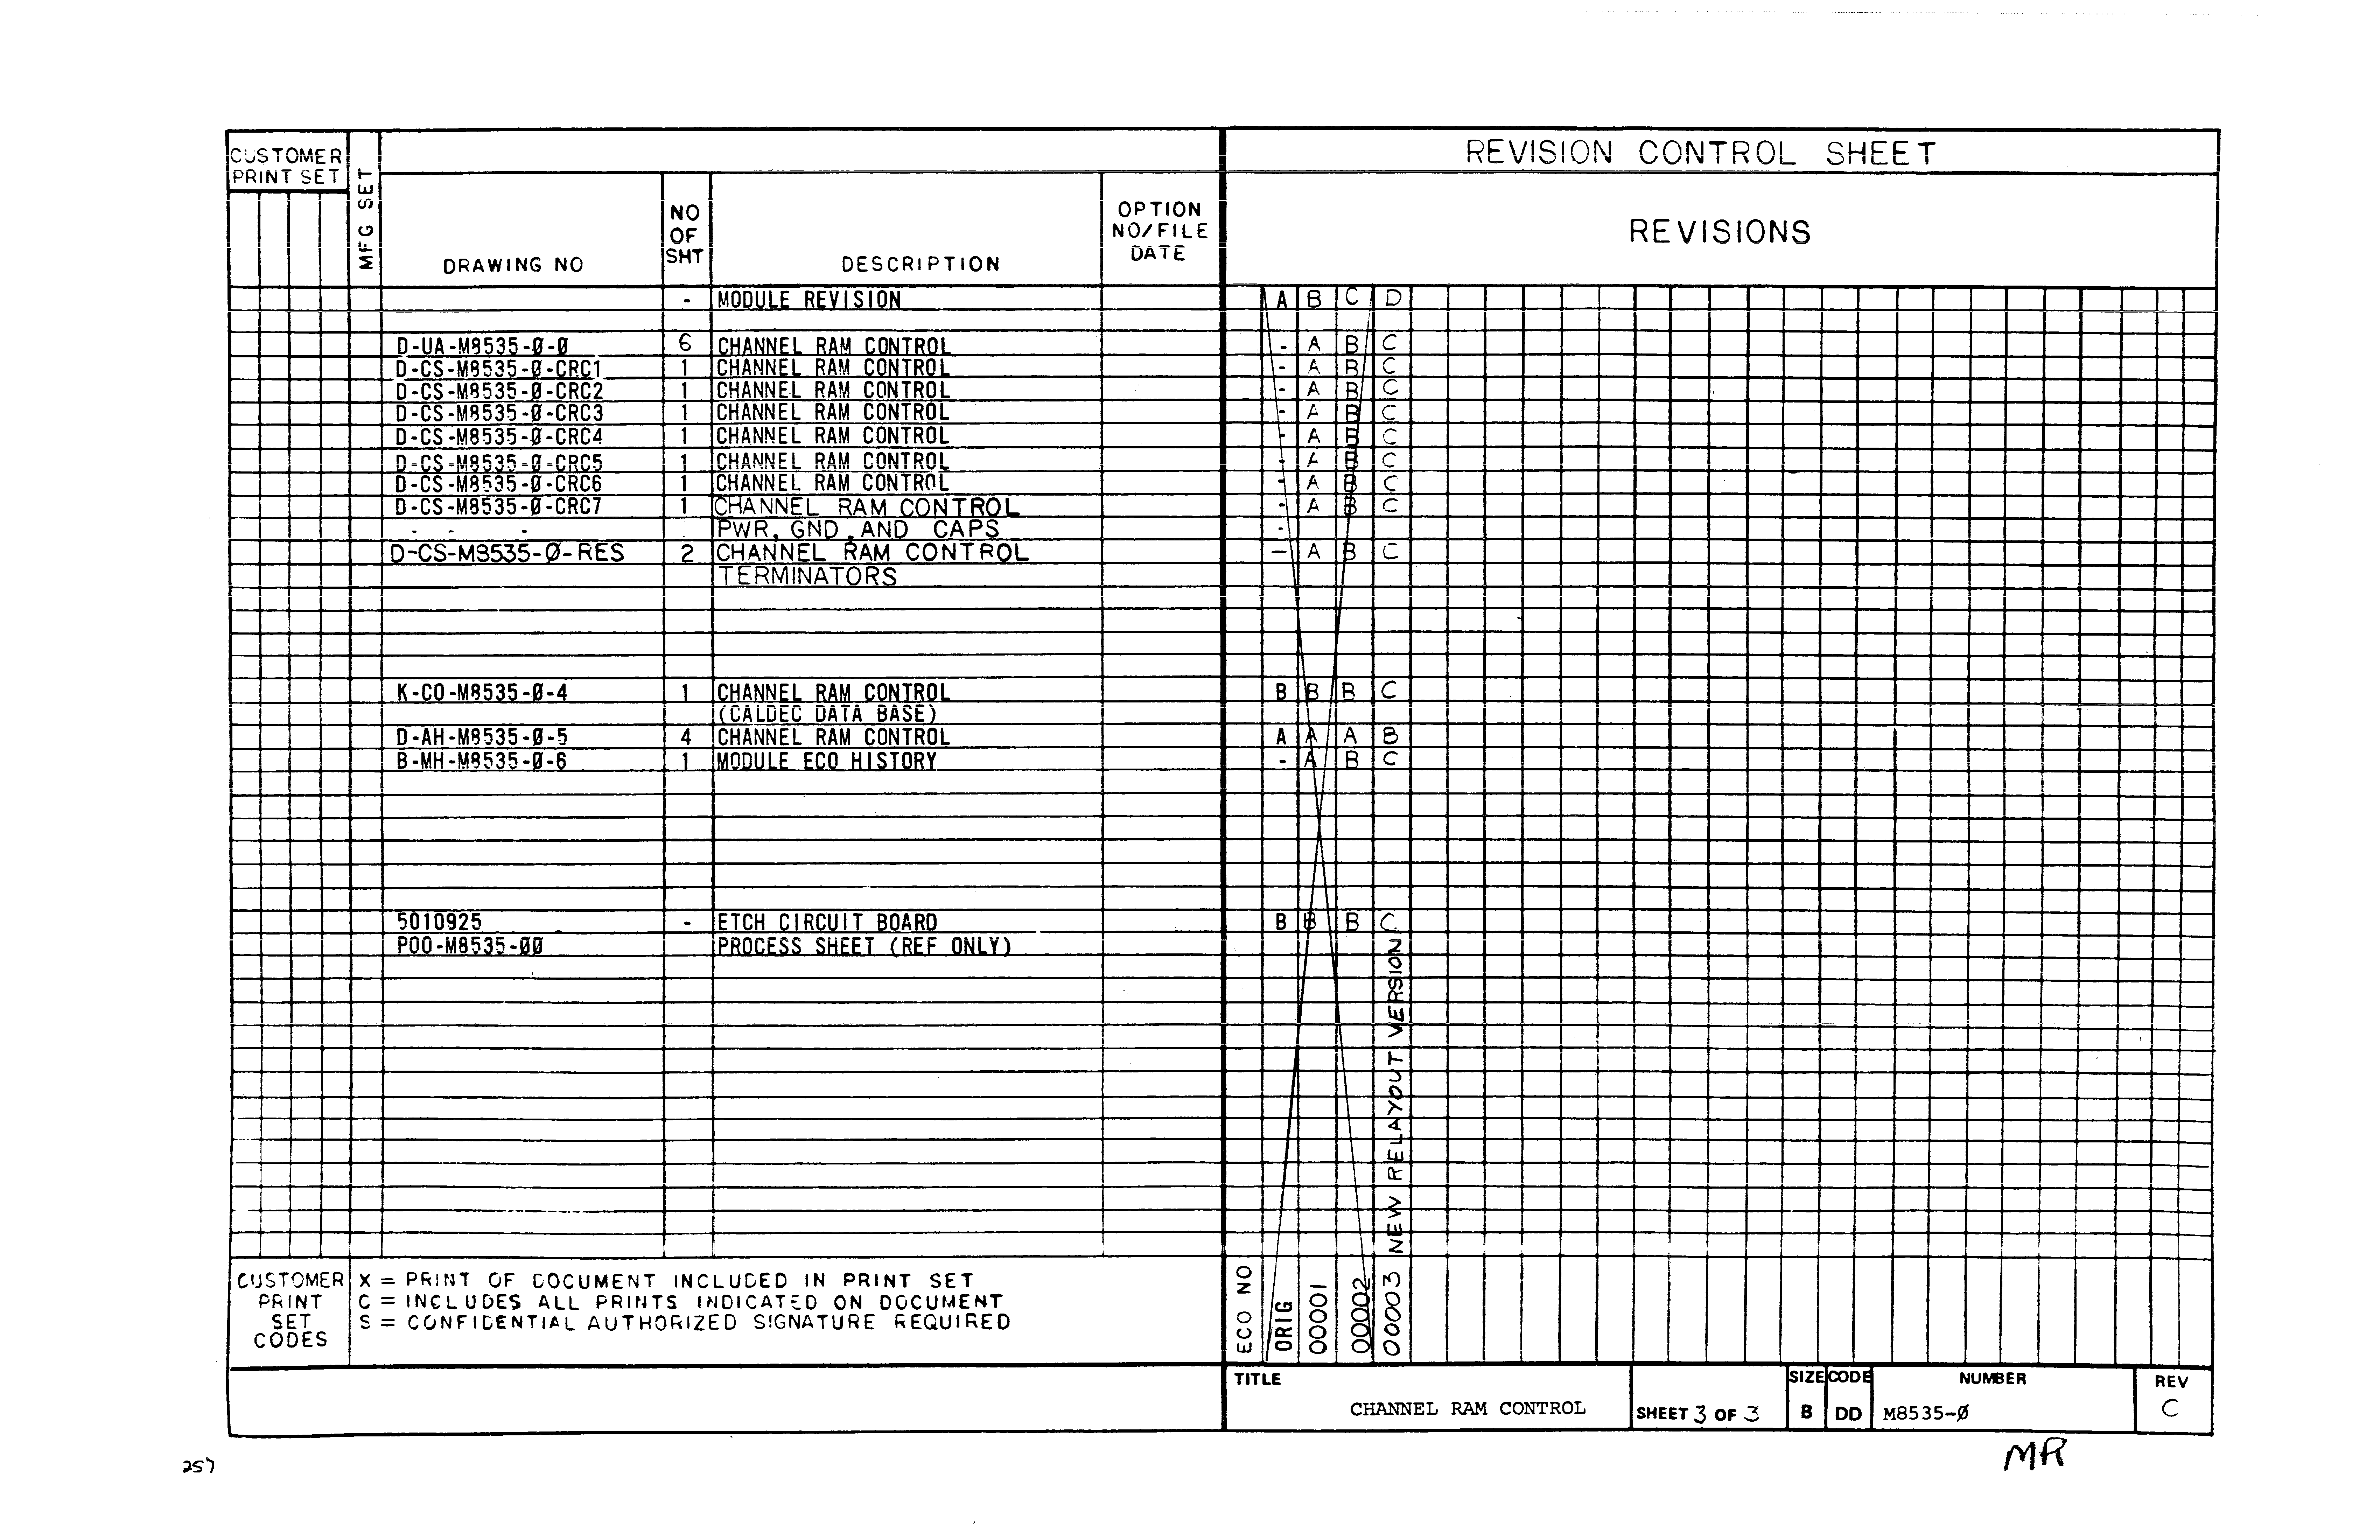 CUSTOMER
PRINT SET
MFG SET
DRAWING NO
NO
OF
SHT
DESCRIPTION
OPTION
NO/FILE
DATE
REVISION CONTROL SHEET
REVISIONS
- MODULE REVISION A B C D
D-UA-M8535-Ø-Ø 6 CHANNEL RAM CONTROL - A B C
D-CS-M8535-Ø-CRC1 1 CHANNEL RAM CONTROL - A B C
D-CS-M8535-Ø-CRC2 1 CHANNEL RAM CONTROL - A B C
D-CS-M8535-Ø-CRC3 1 CHANNEL RAM CONTROL - A B C
D-CS-M8535-Ø-CRC4 1 CHANNEL RAM CONTROL - A B C
D-CS-M8535-Ø-CRC5 1 CHANNEL RAM CONTROL - A B C
D-CS-M8535-Ø-CRC6 1 CHANNEL RAM CONTROL - A B C
D-CS-M8535-Ø-CRC7 1 CHANNEL RAM CONTROL - A B C
- - - PWR, GND, AND CAPS -
D-CS-M8535-Ø-RES 2 CHANNEL RAM CONTROL - A B C
TERMINATORS
K-CO-M8535-Ø-4 1 CHANNEL RAM CONTROL B B B C
(CALDEC DATA BASE)
D-AH-M8535-Ø-5 4 CHANNEL RAM CONTROL A A A B
B-MH-M8535-Ø-6 1 MODULE ECO HISTORY - A B C
5010925 - ETCH CIRCUIT BOARD B B B C
P00-M8535-ØØ PROCESS SHEET (REF ONLY)
NEW RELAYOUT VERSION
CUSTOMER
PRINT
SET
CODES
X = PRINT OF DOCUMENT INCLUDED IN PRINT SET
C = INCLUDES ALL PRINTS INDICATED ON DOCUMENT
S = CONFIDENTIAL AUTHORIZED SIGNATURE REQUIRED
ECO NO
ORIG
00001
00002
00003
TITLE
CHANNEL RAM CONTROL
SHEET 3 OF 3
SIZE
B
CODE
DD
NUMBER
M8535-Ø
REV
C
MR
257